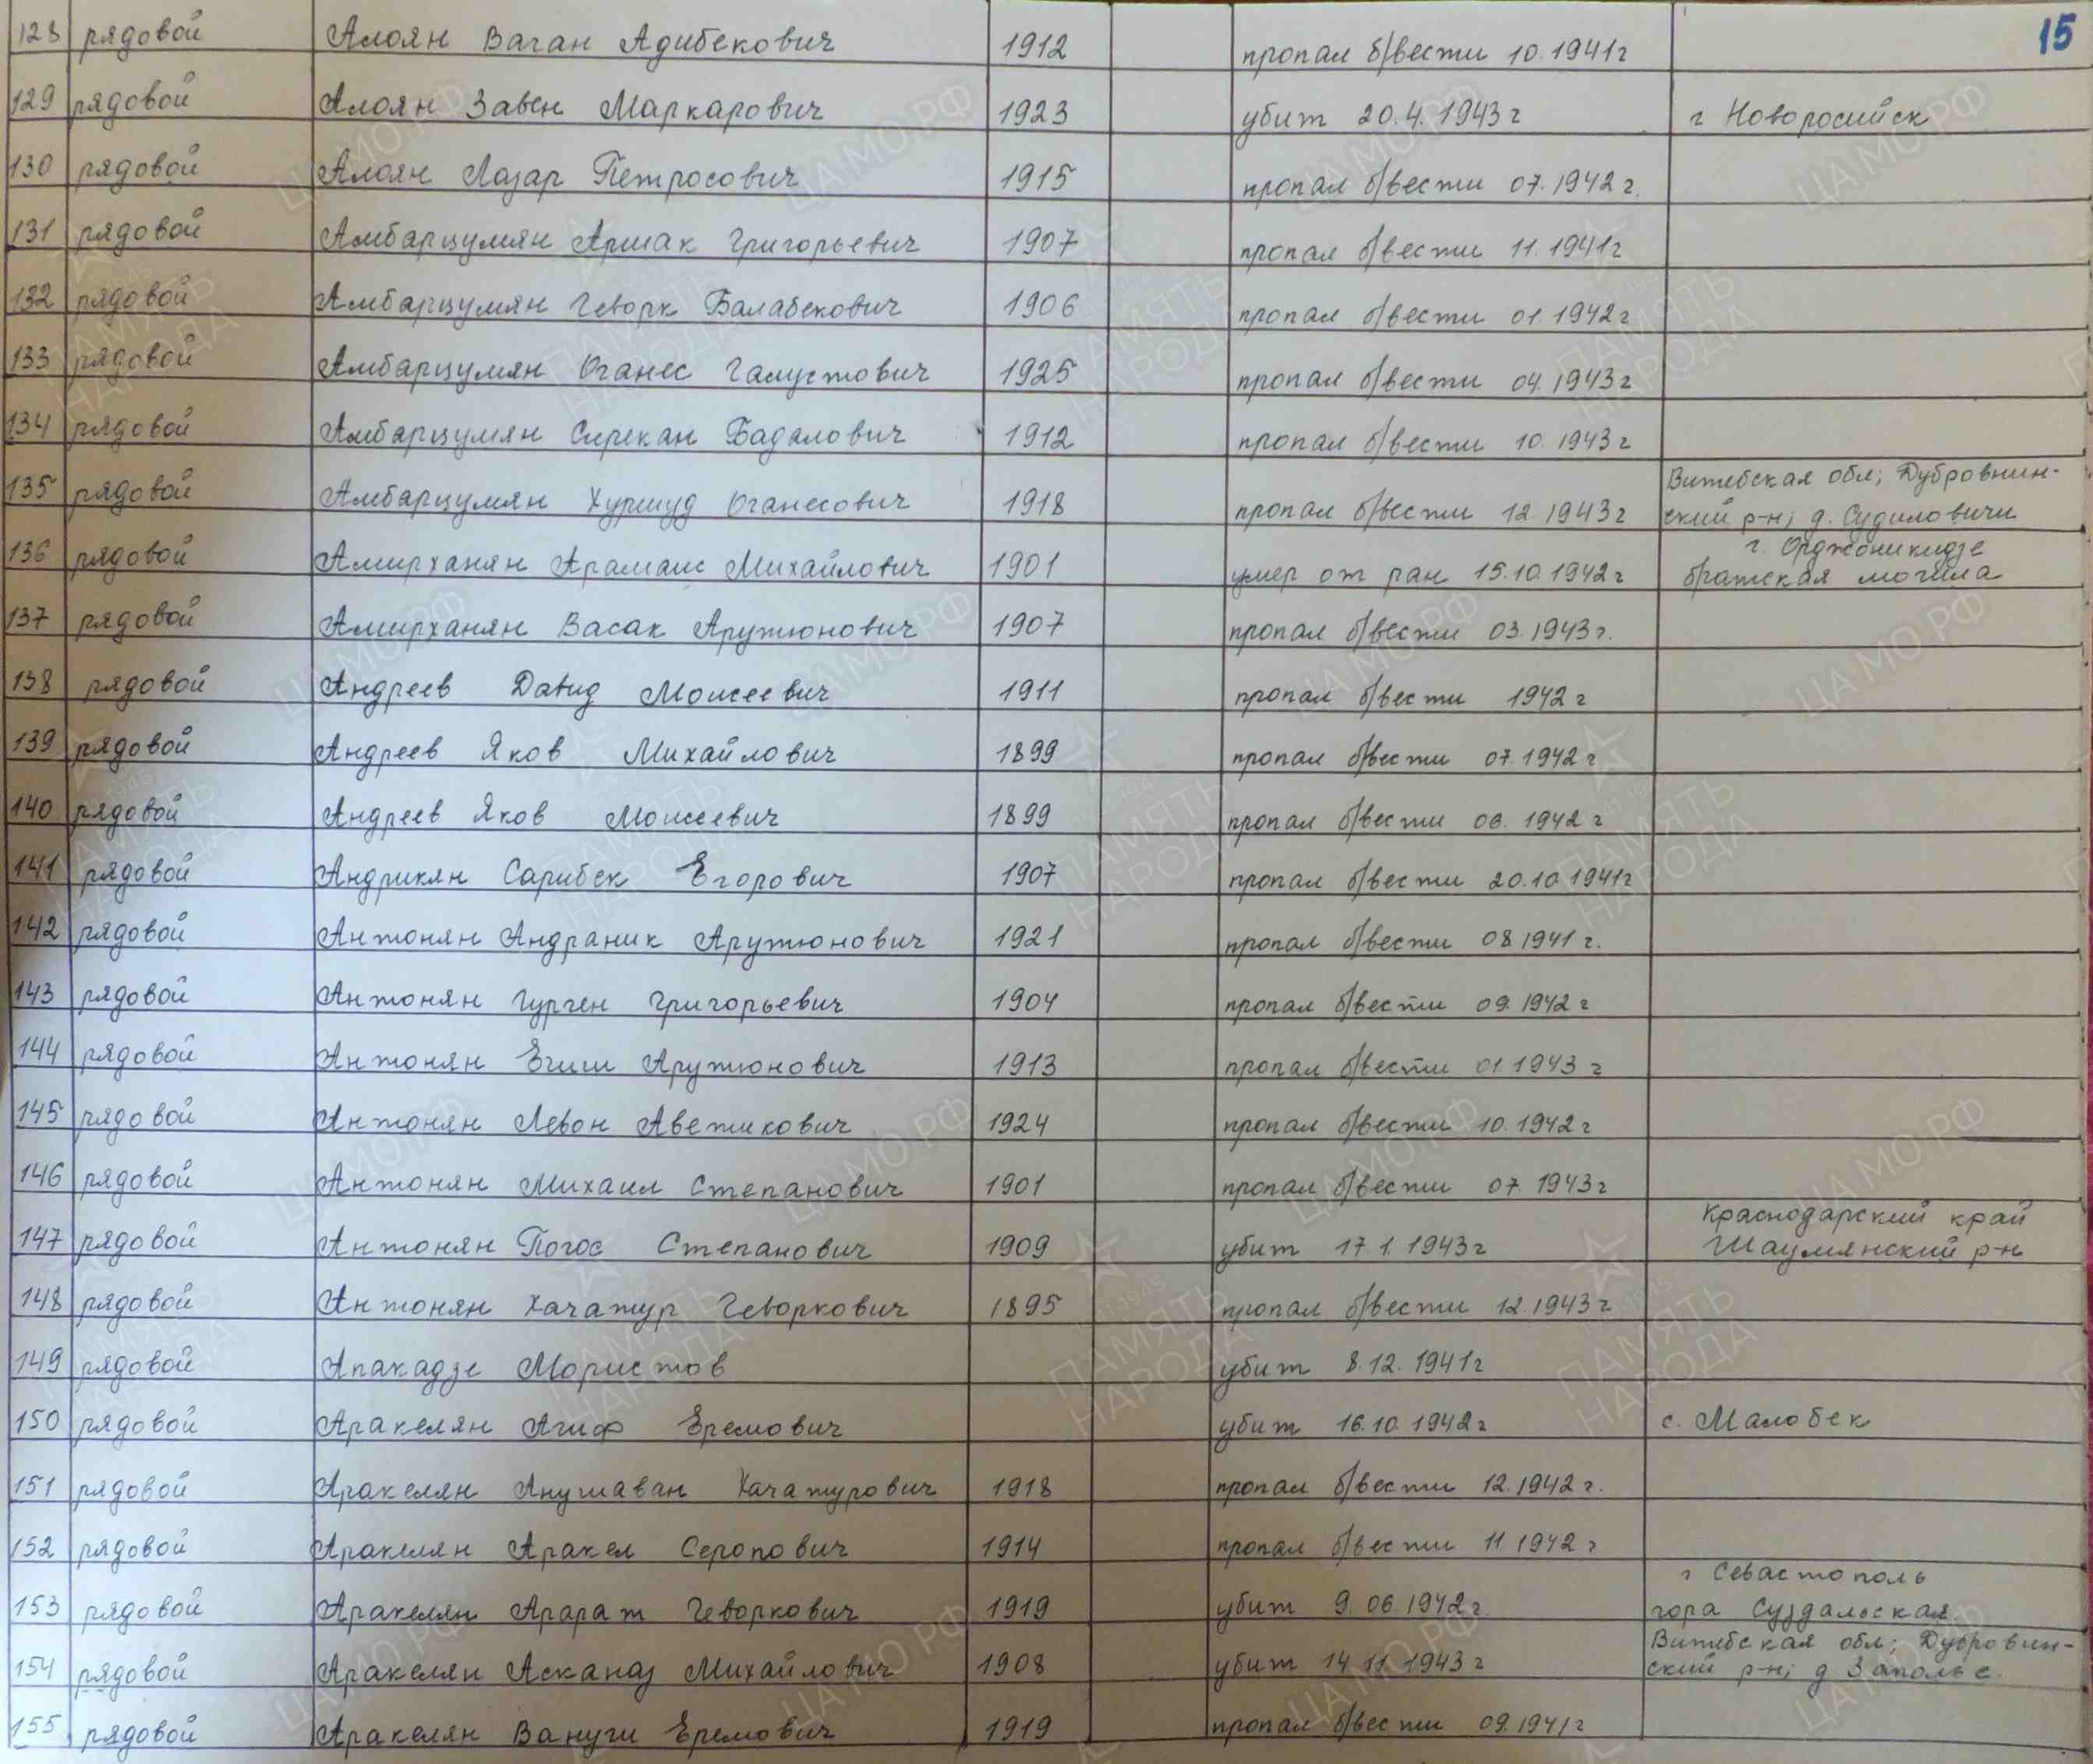 15
128 рядовой Алоян Ваган Адибекович 1912 пропал б/вести 10.1941г
129 рядовой Алоян Завен Маркарович 1923 убит 20.4.1943г г Новоросийск
130 рядовой Алоян Лазар Петросович 1915 пропал б/вести 07.1942г.
131 рядовой Амбарцумян Аршак Григорьевич 1907 пропал б/вести 11.1941г
132 рядовой Амбарцумян Геворк Балабекович 1906 пропал б/вести 01.1942г
133 рядовой Амбарцумян Оганес Галустович 1925 пропал б/вести 04.1943г
134 рядовой Амбарцумян Сирекан Бадалович 1912 пропал б/вести 10.1943г
Витебская обл; Дубровнин-
135 рядовой Амбарцумян Хуршуд Оганесович 1918 пропал б/вести 12.1943г ский р-н; д. Судиловичи
г. Орджоникидзе
136 рядовой Амирханян Арамаис Михайлович 1901 умер от ран 15.10.1942г братская могила
137 рядовой Амирханян Васак Арутюнович 1907 пропал б/вести 03.1943г.
138 рядовой Андреев Давид Моисеевич 1911 пропал б/вести 1942г
139 рядовой Андреев Яков Михайлович 1899 пропал б/вести 07.1942г
140 рядовой Андреев Яков Моисеевич 1899 пропал б/вести 06.1942г
141 рядовой Андрикян Сарибек Егорович 1907 пропал б/вести 20.10.1941г
142 рядовой Антонян Андраник Арутюнович 1921 пропал б/вести 08.1941г.
143 рядовой Антонян Гурген Григорьевич 1904 пропал б/вести 09.1942г
144 рядовой Антонян Егиш Арутюнович 1913 пропал б/вести 01.1943г
145 рядовой Антонян Левон Аветикович 1924 пропал б/вести 10.1942г
146 рядовой Антонян Михаил Степанович 1901 пропал б/вести 07.1943г
Краснодарский край
147 рядовой Антонян Погос Степанович 1909 убит 17.1.1943г Шаумянский р-н
148 рядовой Антонян Хачатур Геворкович 1895 пропал б/вести 12.1943г
149 рядовой Апакадзе Мористов убит 8.12.1941г
150 рядовой Аракелян Агиф Еремович убит 16.10.1942г с. Малобек
151 рядовой Аракелян Анушаван Хачатурович 1918 пропал б/вести 12.1942г.
152 рядовой Аракелян Аракел Серопович 1914 пропал б/вести 11 1942г
г Севастополь
153 рядовой Аракелян Арарат Геворкович 1919 убит 9.06.1942г. гора Суздальская
Витебская обл; Дубровин-
154 рядовой Аракелян Асканаз Михайлович 1908 убит 14.11.1943г ский р-н; д. Заполье.
155 рядовой Аракелян Вануги Еремович 1919 пропал б/вести 09.1941г
ЦАМО.РФ
ПАМЯТЬ
НАРОДА